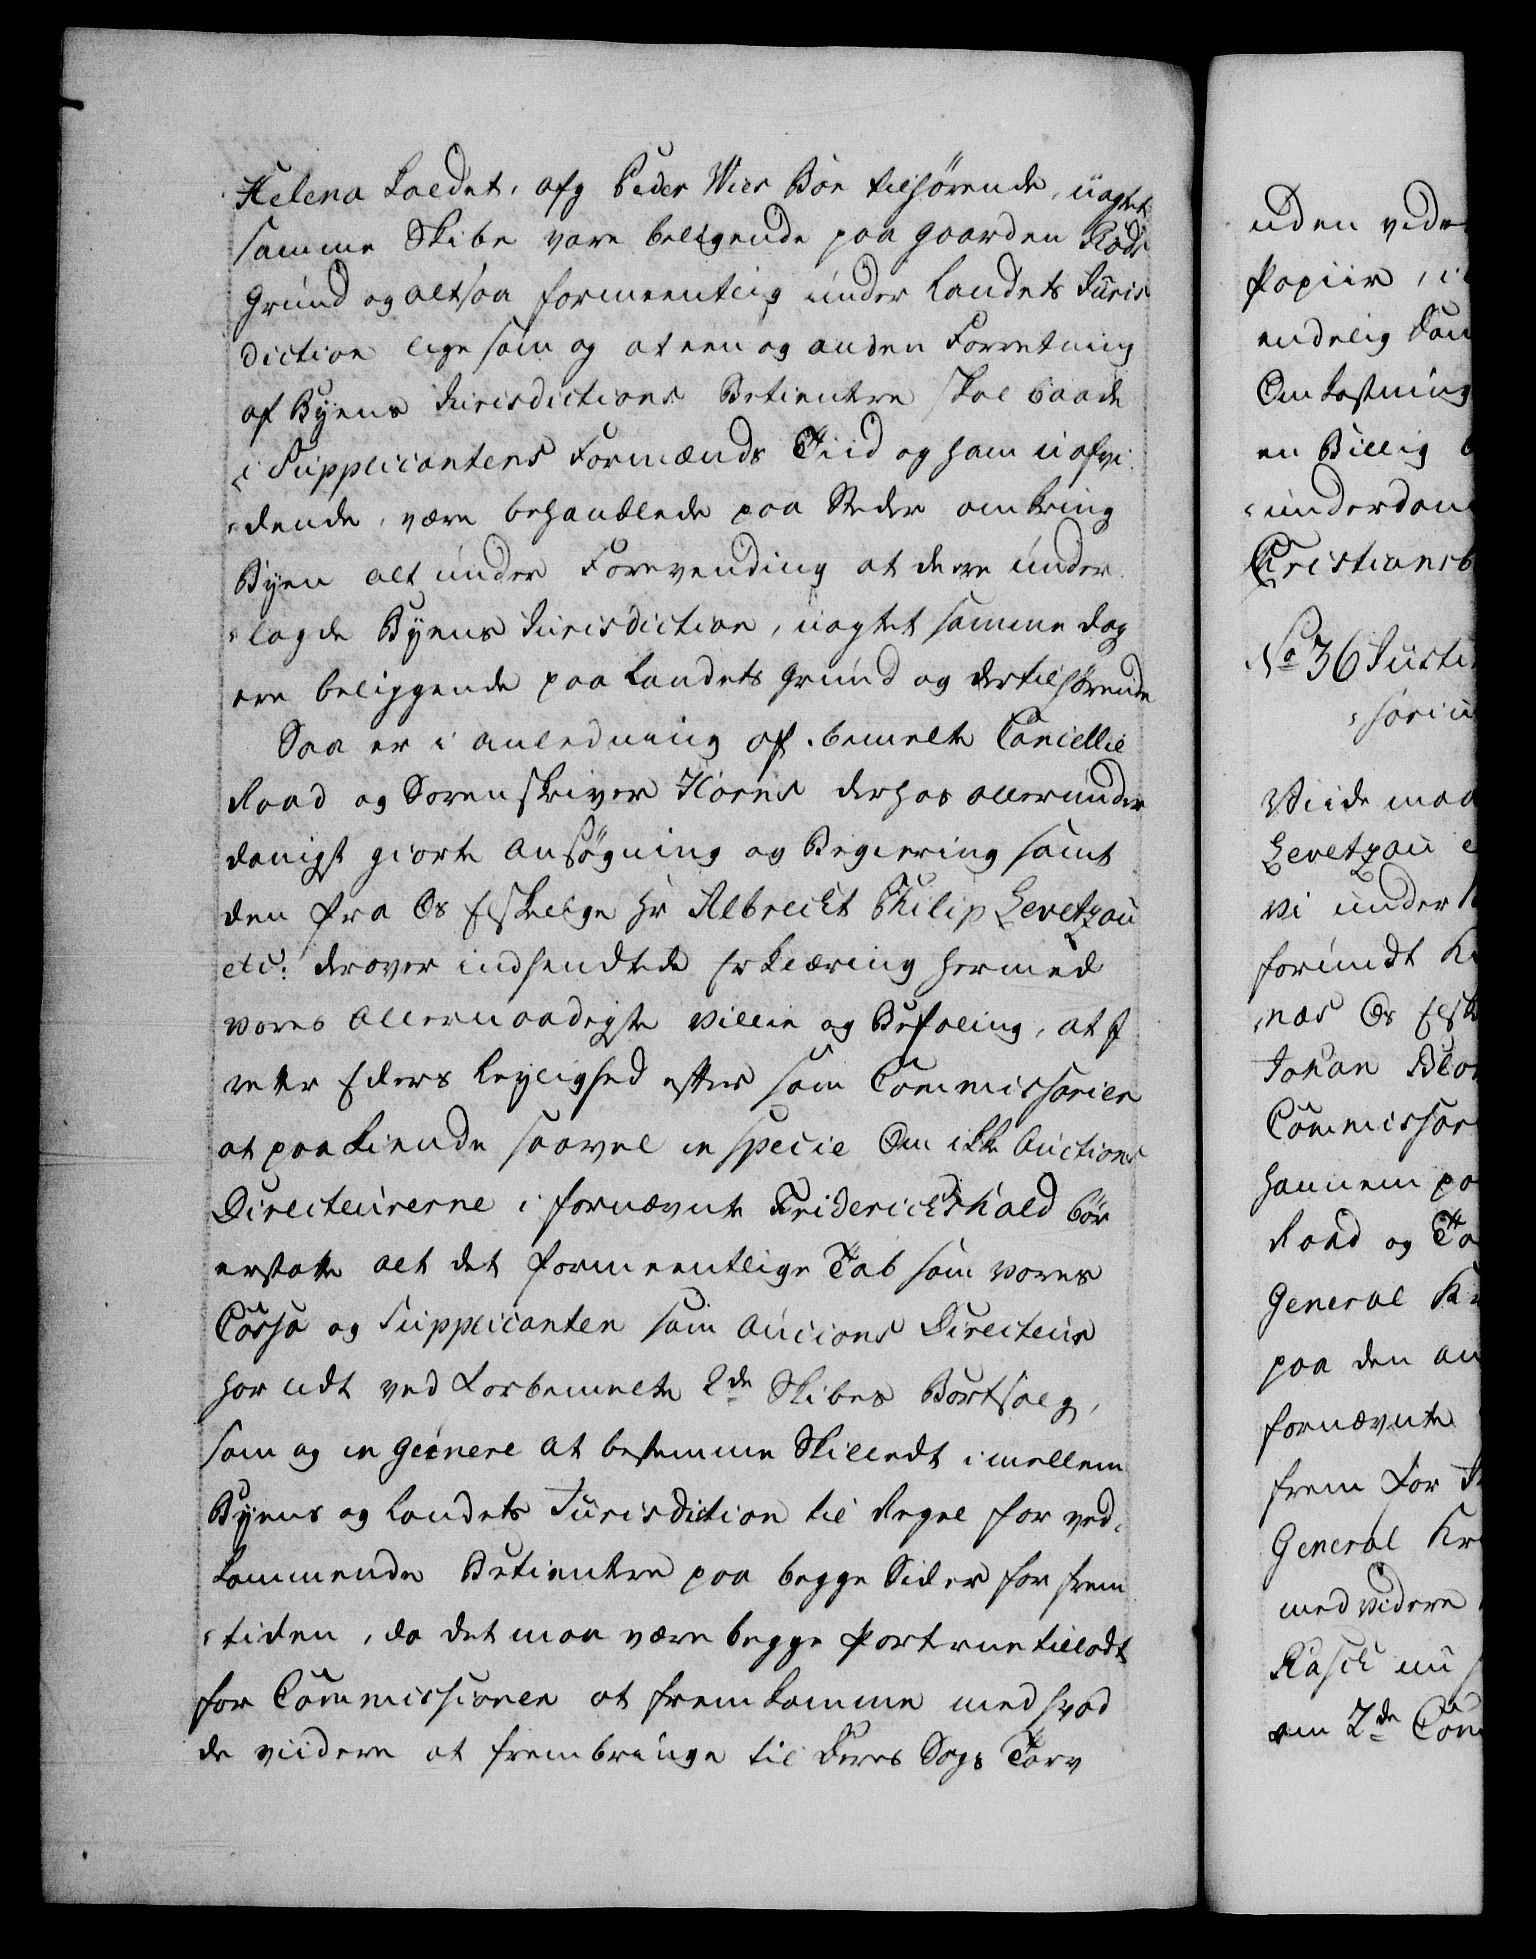 Helena kaldet, afg Peder Wier Bøe tilhørende, uagtet
samme Skibe vare beligende paa gaarden Røds
Grund og altsaa formeentlig under Landets Juris
diction lige som og at een og anden Forretning
af Byens Jurisdictions Betientere skal baade
i Supplicantens Formænds Tiid og ham uafvi
=dende, være behandlede paa Steder omkring
Byen alt under Forevending at de ere under
=lagde Byens Jurisdiction, uagtet samme dog
ere beliggende paa Landets Grund og dertilhørende
Saa er i anledning af bemelte Cancellie
Raad og Sorenskriver Horns derhos allerunder
danigst giorte Ansøgning og Begiering samt
den fra Os Elskelige Hr Albrecht Philip Levetzau
etc: derover indsendte Erklæring hermed
vores Allernaadigste Villie og Befaling, at I
retter Eders Leylighed efter som Commissarier
at paakiende saavel in specie Om ikke Auctions
Directeurerne i fornævnte Friderichshald bør
erstatte alt det formeentlige Tab som vores
Cassa og Supplicanten som Auctions Directeur
har lidt ved Forbemelte 2de Skibes Bortsalg,
som og in genere at bestemme Skillet imellem
Byens og Landets Jurisdiction til Regel for ved=
kommende Betientere paa begge Sider for frem
=tiden, da det maa være begge Parterne tilladt
for Commissionen at fremkomme med hvad
de viidere at frembringe til deres Sags Tarv
uden vider
Papiir, i
endelig
Omkostning
en Billig
=underdan
Christiansb
No 36 Justi
Viide maa
Levetzau
vi under
forundt
næs Os Elsk
Johan
Commissar
hannem pa
Raad og
General Kr
paa den an
fornævnte
frem for
General Kr
med videre
Rasch nu
om 2de Com